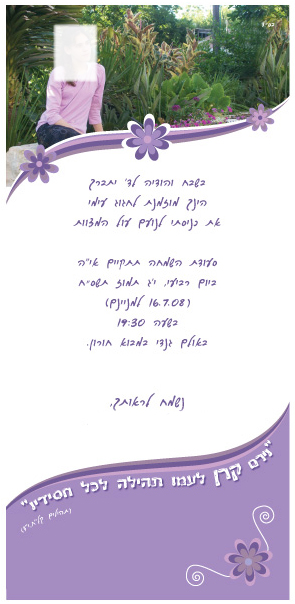 בס"ד
בשבח והודיה לד' יתברך
הינך מוזמנת לחגוג עימי
את כניסתי לנועם עול המצוות
סעודת השמחה תתקיים אי"ה
ביום רביעי, י"ג תמוז תשס"ח
(16.7.08 למניינם)
בשעה 19:30
באולם גנדי במבוא חורון.
נשמח לראותך,
"וירם קרן לעמו תהילה לכל חסידיו"